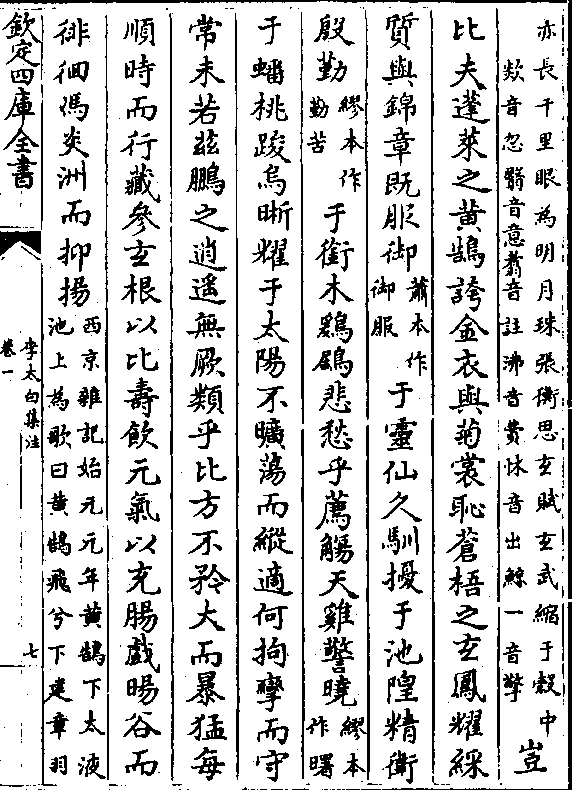 亦長千里眼為明月珠張衡思玄賦玄武縮于殻中
欻音忽翳音意翥音註沸音費怵音出鯨一音擎
豈
比夫蓬萊之黄鵠誇金衣與菊裳恥蒼梧之玄鳳耀綵
質與錦章既服御蕭本作御服于靈仙久馴擾于池隍精衛
殷勤繆本作勤苦于銜木鶢鶋悲愁乎薦觴天雞警曉繆本作曙
于蟠桃踆烏晰耀于太陽不曠蕩而縱適何拘攣而守
常未若兹鵬之逍遥無厥類乎比方不矜大而暴猛每
順時而行藏參玄根以比壽飲元氣以充腸戲暘谷而
徘徊馮炎洲而抑揚
西京雜記始元元年黄鵠下太液
池上為歌曰黄鵠飛兮下建章羽
欽定四庫全書
李太白集注
卷一
七